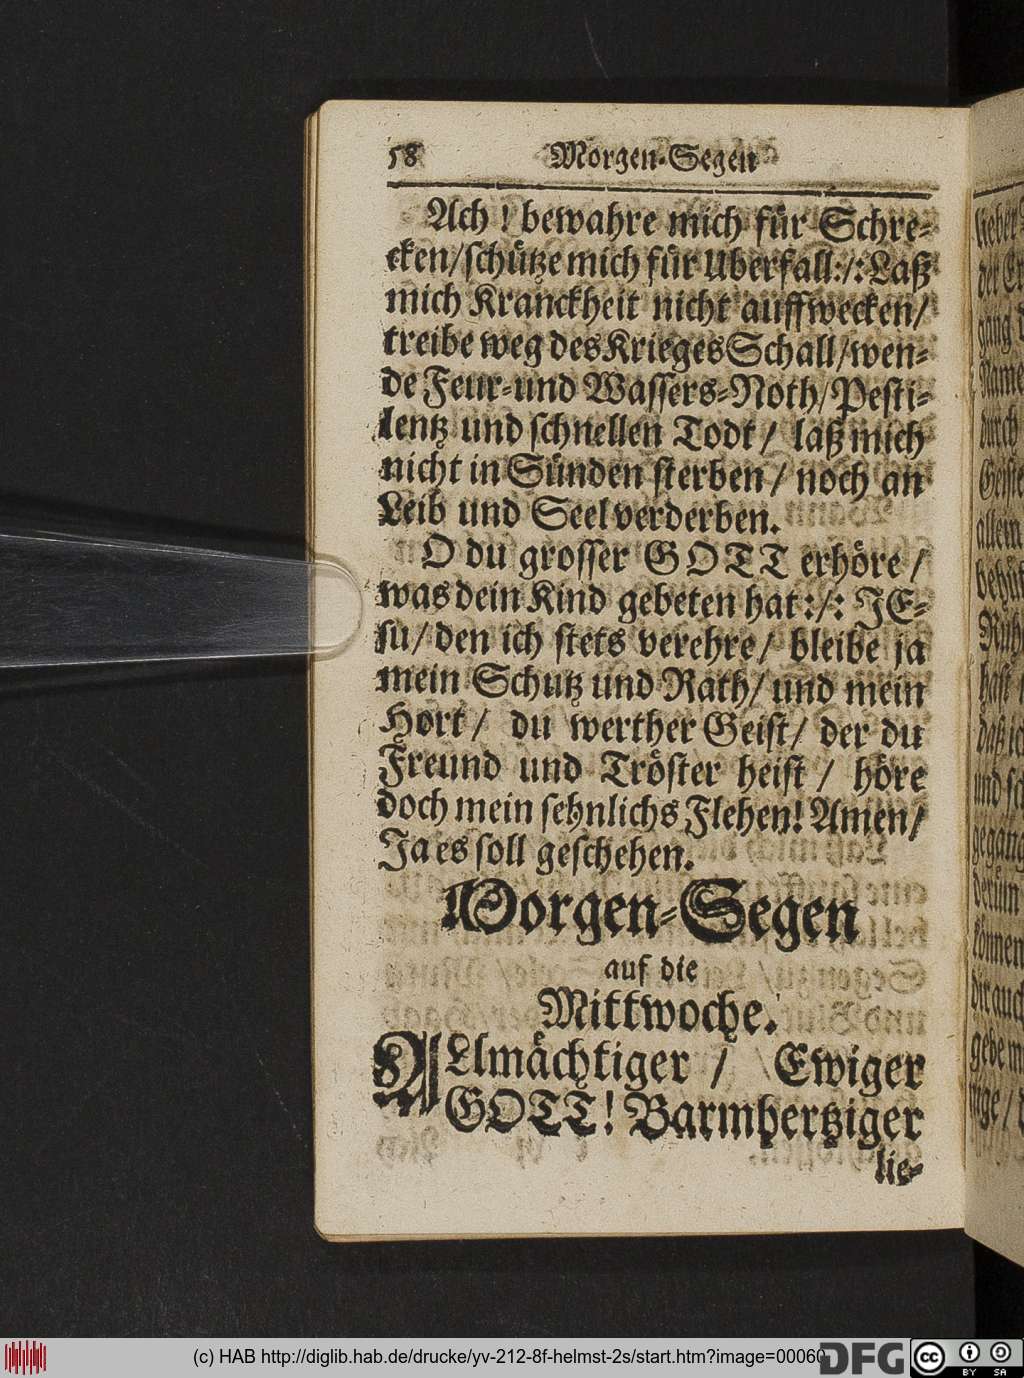 58 Morgen-Segen
Ach! bewahre mich für Schre-
cken/schütze mich für Uberfall:/:Laß
mich Kranckheit nicht auffwecken/
treibe weg des Krieges Schall/wen-
de Feur-und Wassers-Noth/Pesti-
lentz und schnellen Todt/ laß mich
nicht in Sünden sterben/ noch an
Leib und Seel verderben.
O du grosser GOTT erhöre/
was dein Kind gebeten hat:/: JE-
su/ den ich stets verehre/ bleibe ja
mein Schutz und Rath/ und mein
Hort/ du werther Geist/ der du
Freund und Tröster heist/ höre
doch mein sehnlichs Flehen! Amen/
Ja es soll geschehen.
Morgen-Segen
auf die
Mittwoche.
ALlmächtiger / Ewiger
GOTT! Barmhertziger
lie-
lieber
der Er
gang
Name
durch
Geiste
allem
behüt
Ruh
hast
daß ic
und sc
gegang
derum
können
dir auch
gebe m
nige/
(c) HAB http://diglib.hab.de/drucke/yv-212-8f-helmst-2s/start.htm?image=00060
DFG
cc BY SA